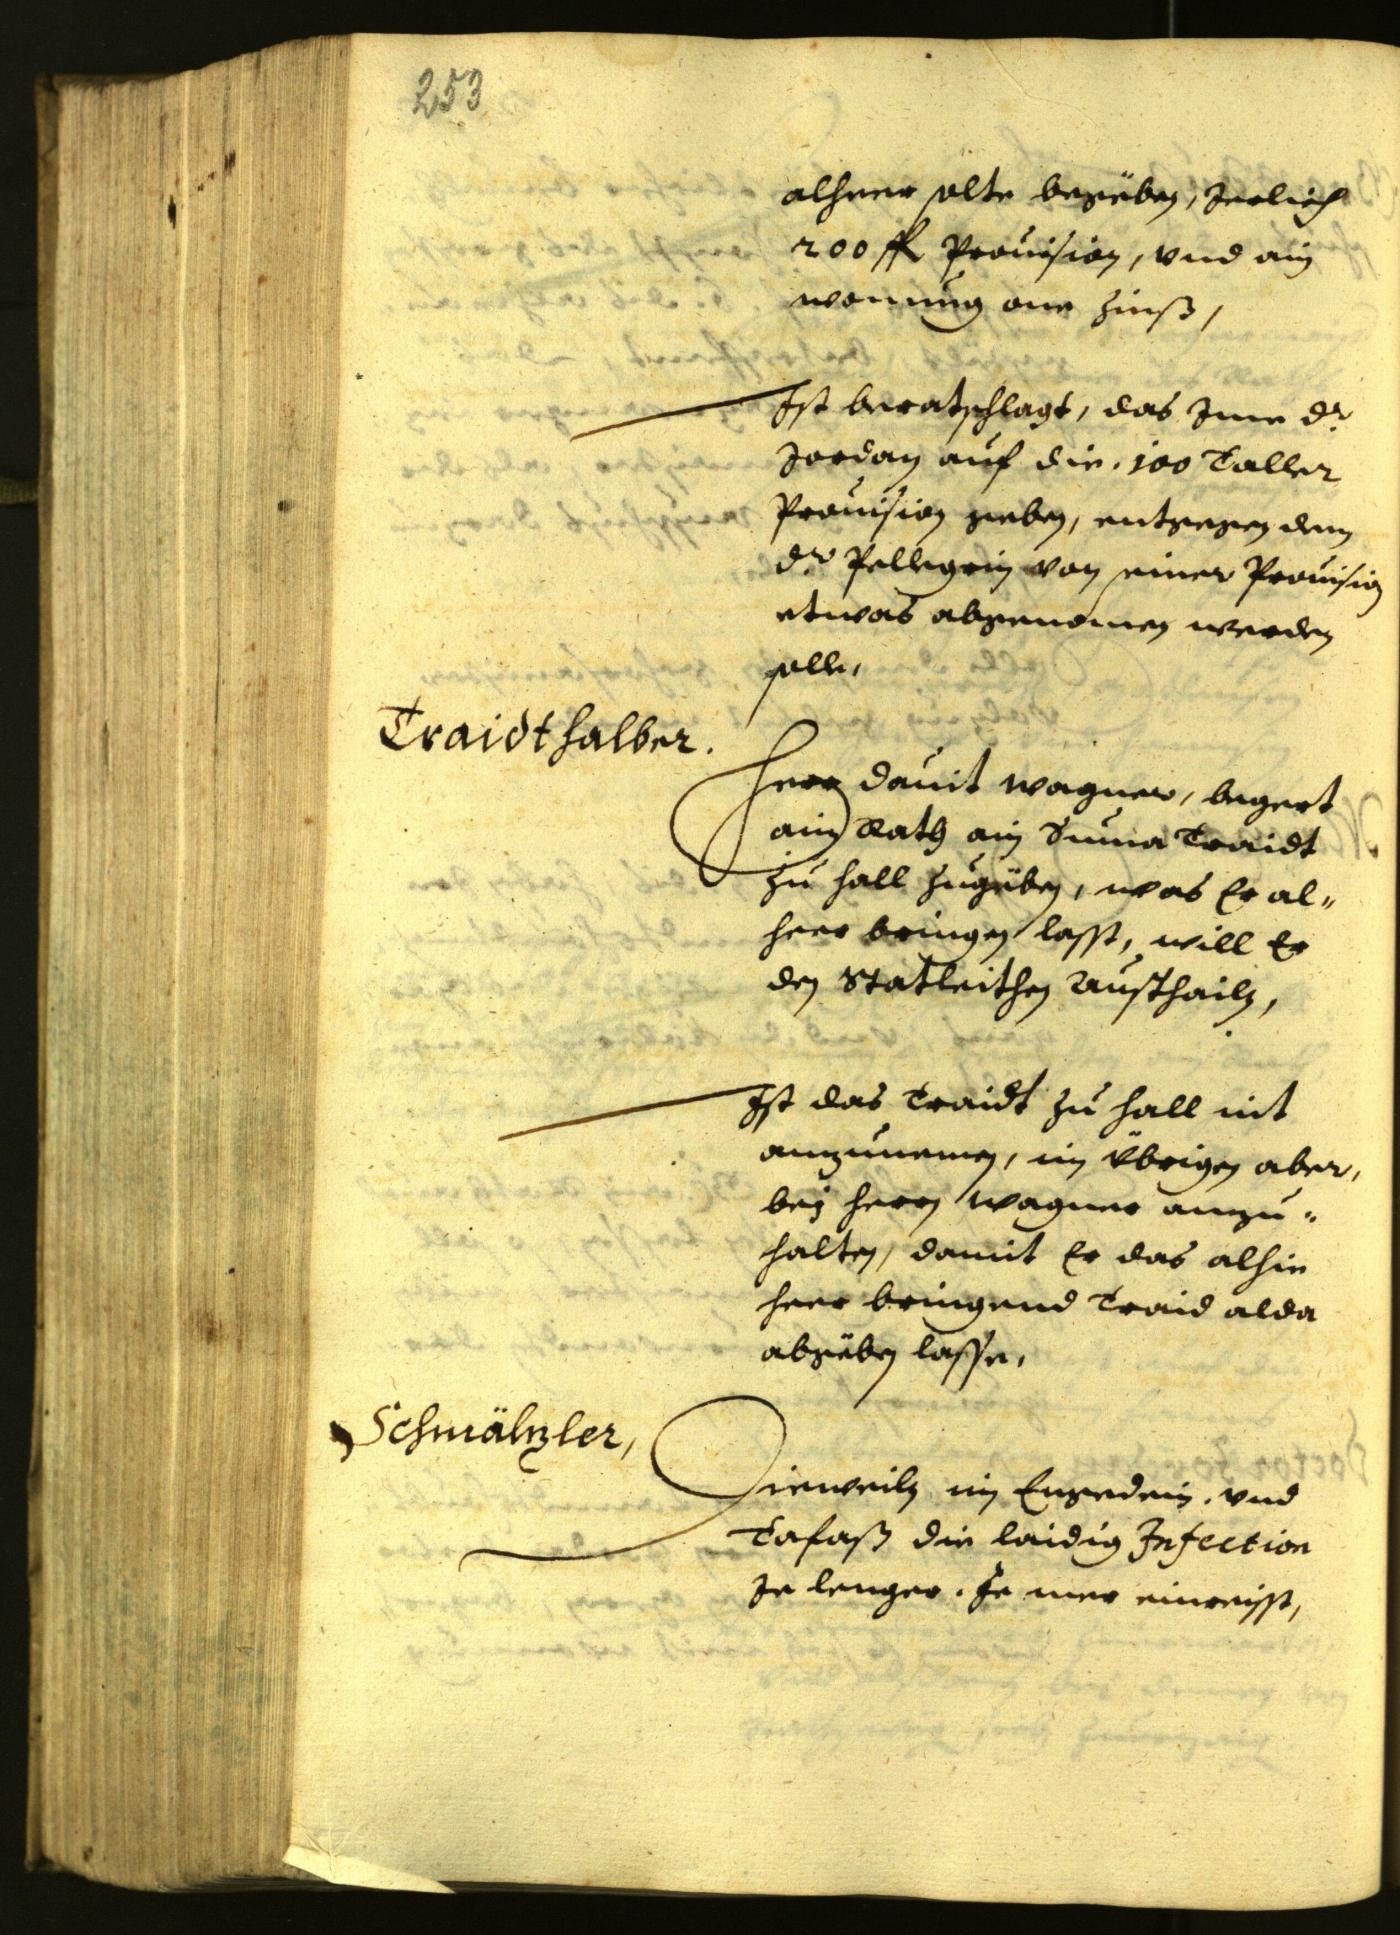 253
alheer solte begeben, Jerlich
200 fl Prouision, vnd ain
wonnung one Zinß,
Ist beratschlagt, das Jme dr.
Jordan auf die .100 Taller
Prouision geben, entgegen dem
dr. Pellegrin von seiner Prouision
etwas abgenomen werden
solle,
Traidt halber.
Herr dauit wagner, begert
ain Rath ain Suma Traidt
zu hall zugeben, was Er al„
heer bringen lasst, will Er
den Statleithen Austhailn,
Ist das Traidt zu hall nit
anzunemen, im Übrigen aber,
bej herrn wagner anzu„
halten, damit Er das alhie
heer bringend Traid alda
abgeben lasse,
Schmälzler,
Dieweiln im Engedein, vnd
Tafaß die laidig Infection
Je lenger, Je mer einreisst,